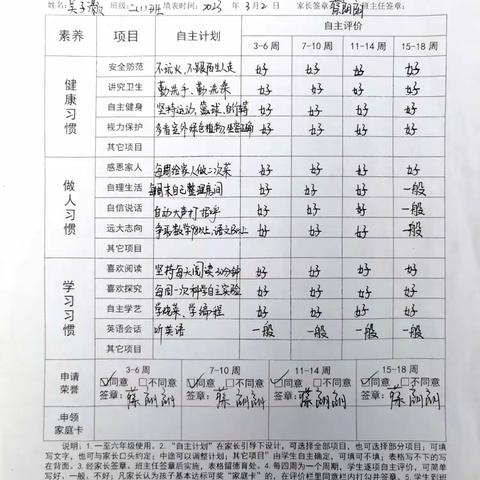 姓名: 班级:二(1)班 填表时间:2023年3月2日 家长签章: 班主任签章:
素养 项目 自主计划 自主评价
3-6周 7-10周 11-14周 15-18周
健康习惯
安全防范 不玩火,不跟陌生人走 好 好 好 好
讲究卫生 勤洗手、勤洗澡 好 好 好 好
自主健身 坚持运动,篮球、 好 好 好 好
视力保护 多看室外绿色植物, 好 好 好 好
其它项目
做人习惯
感恩家人 每周给家人做一次菜 好 好 好 好
自理生活 每周末自己整理房间 好 好 好 一般
自信说话 自动大声打招呼 好 好 好 一般
远大志向 争取数学 以上,语文 以上 好 好 好 一般
其它项目
学习习惯
喜欢阅读 坚持每天阅读30分钟 好 好 好 好
喜欢探究 每周一次科学自主实验 好 好 好 好
自主学艺 学 、学编程 好 好 好 好
英语会话 听英语 一般 一般 一般 一般
其它项目
申请荣誉
3-6周 7-10周 11-14周 15-18周
☑同意 □不同意 ☑同意 □不同意 ☑同意 □不同意 ☑同意 □不同意
签章: 签章: 签章: 签章:
申领家庭卡
说明:1.一至六年级使用。2."自主计划"在家长引导下设计,可选择全部项目,也可选择部分项目;可填
写文字,也可与家长口头约定;中途可以调整计划;其它项目"由学生自主确定,可填可不填。表格内写不下的写
在背面。3.经家长签章、班主任签章后实施,表格留德育处。4.每四周为一个周期,学生逐项自主评价,可简单
写好、一般、不好;凡家长认为孩子基本达标可奖"家庭卡"的,在评价栏里同意栏内打勾并签章。5.学生到班